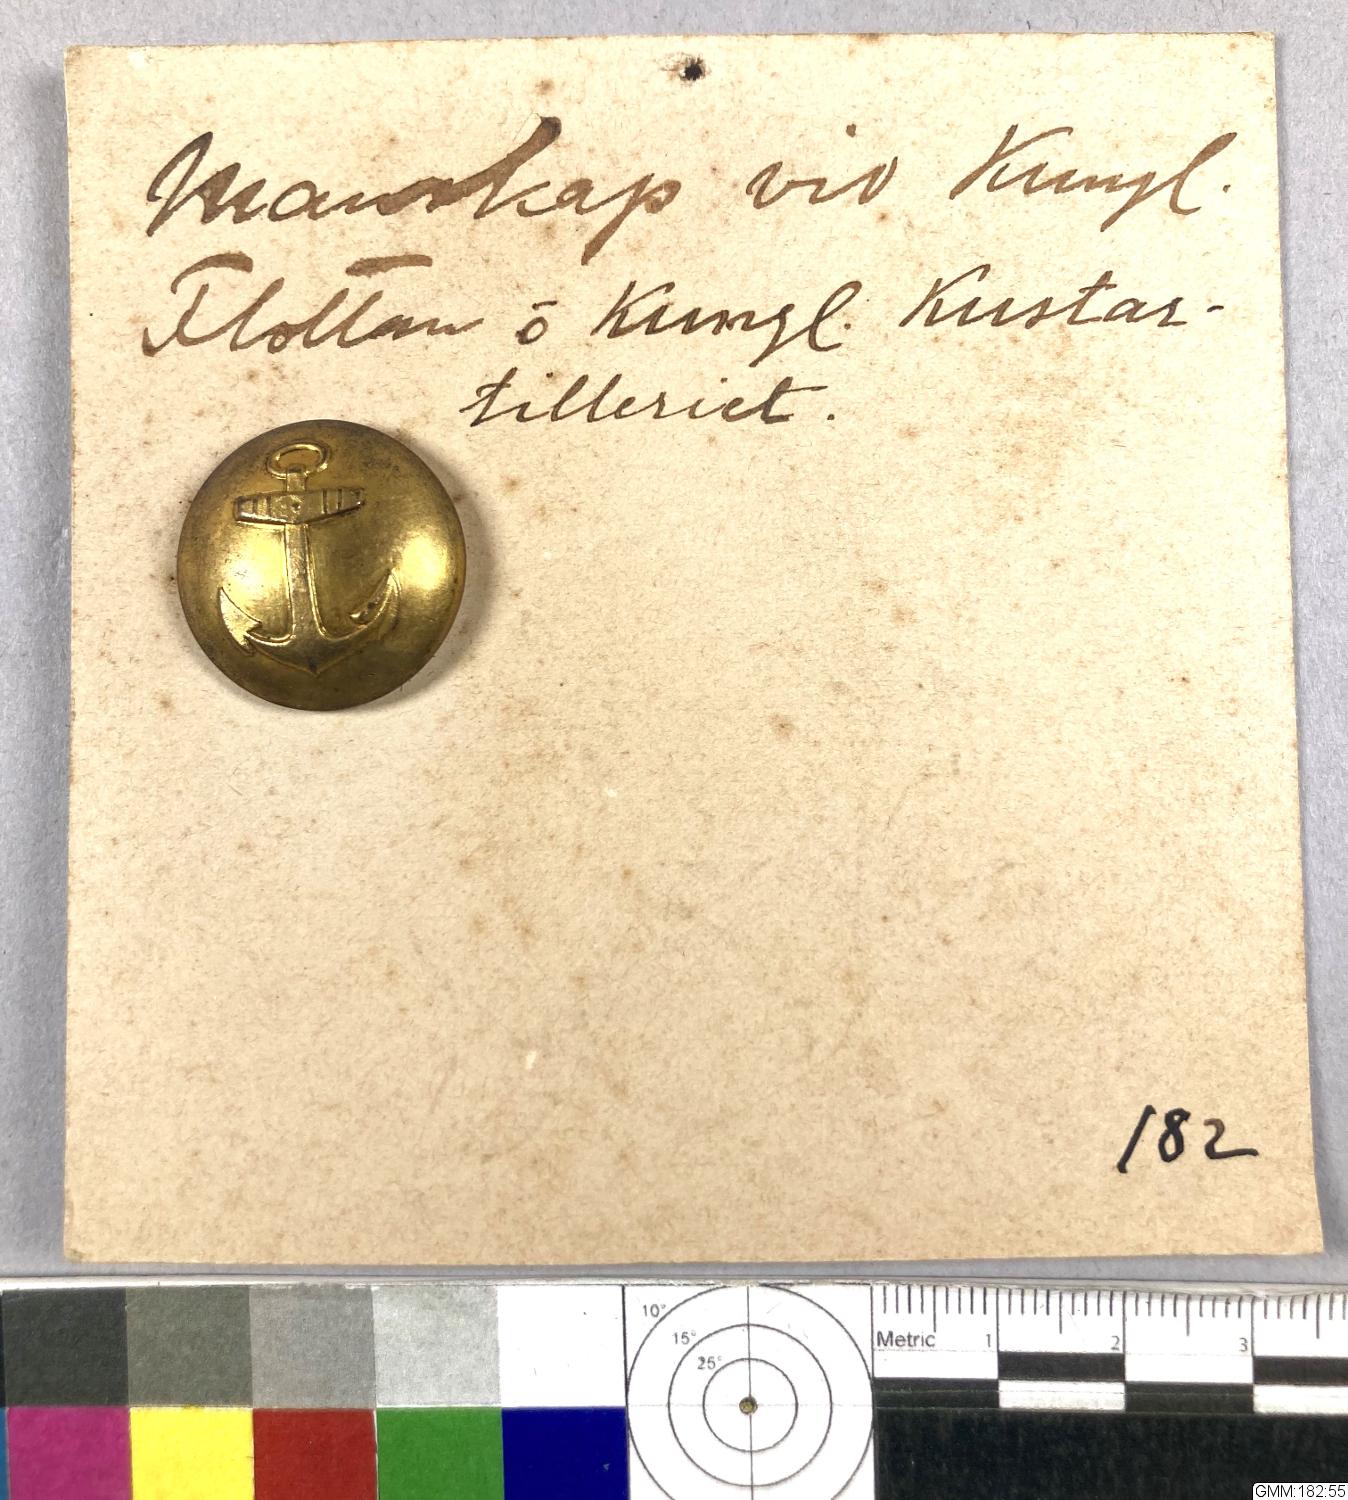 Manskap vid Kungl.
Flottan o Kungl. Kustar-
tilleriet.
182
10° 15° 25°
Metric 1 2 3
GMM:182:55